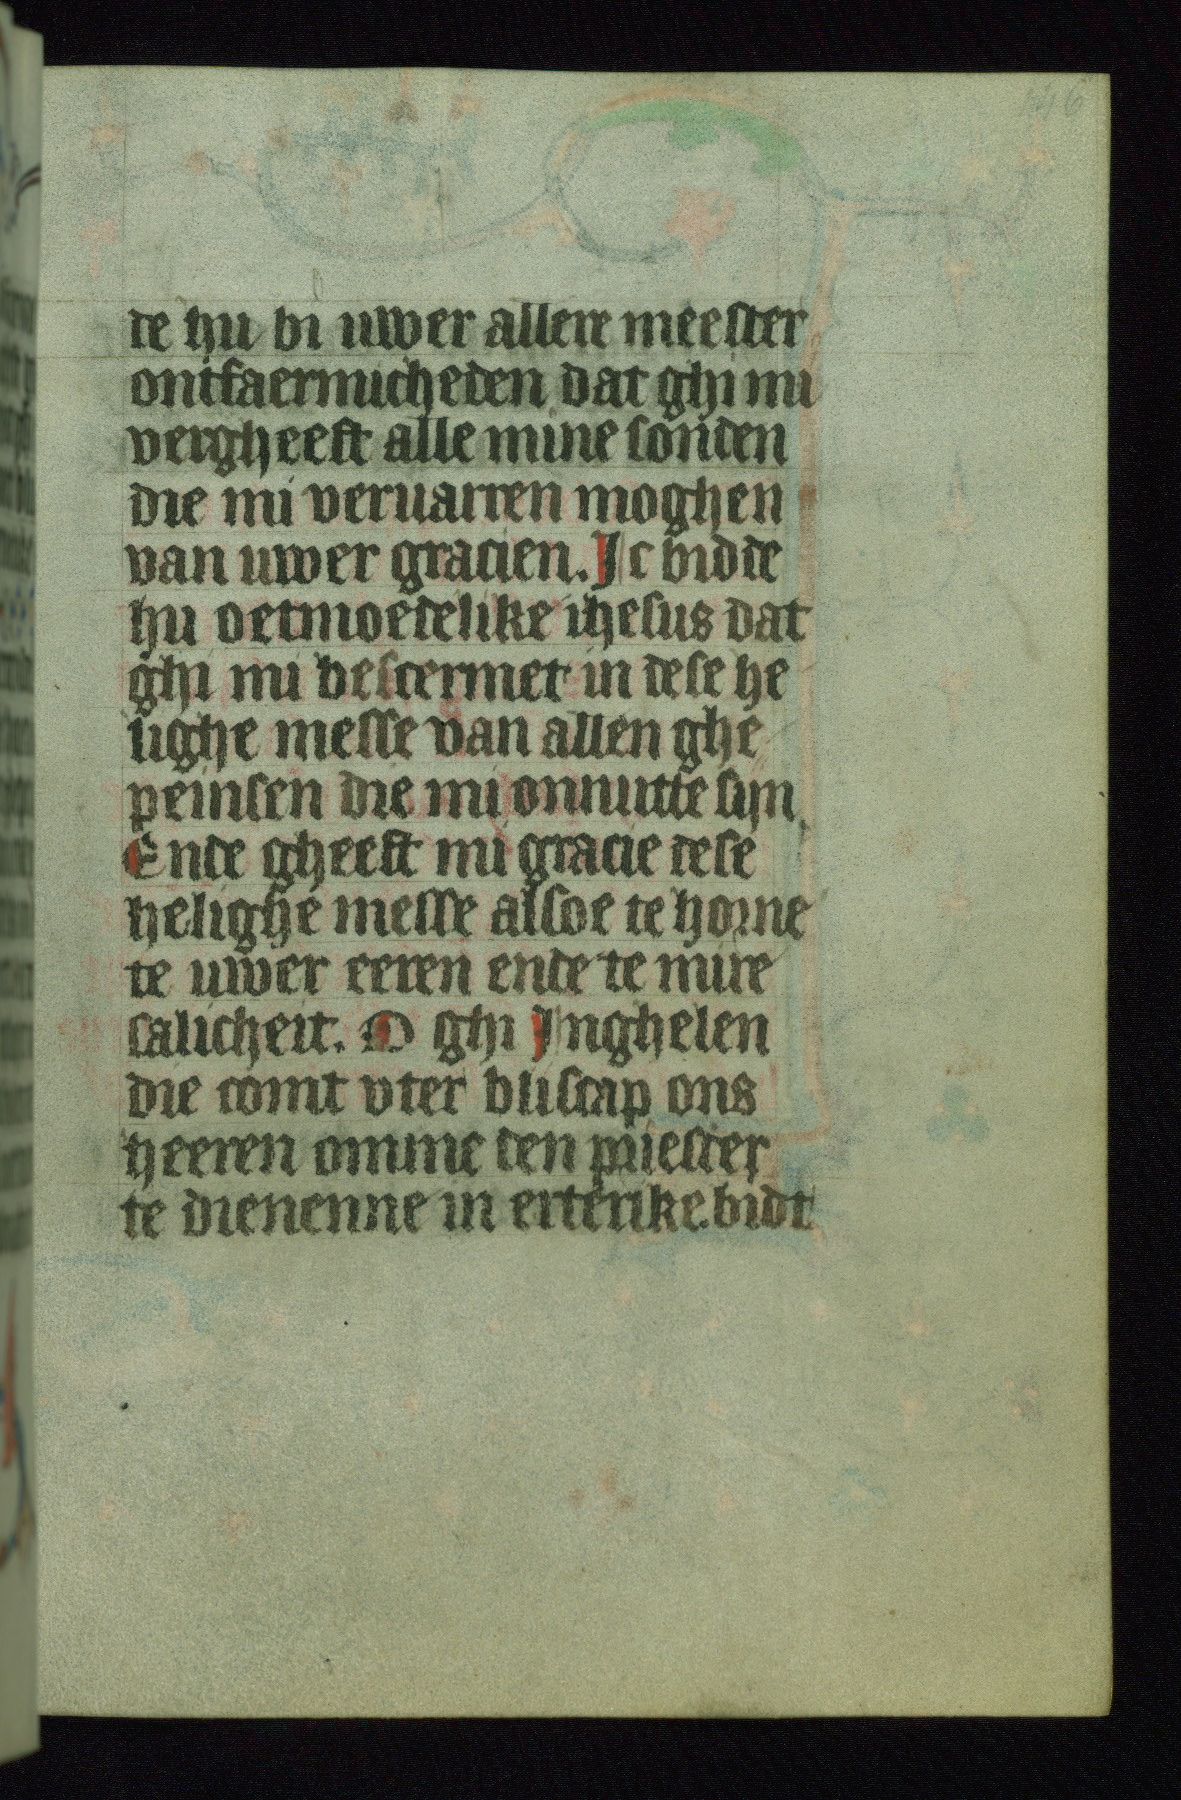 146
te hu bi uwer allere meester
ontfaermicheden dat ghi mi
vergheeft alle mine sonden
die mi veruarren moghen
van uwer gracien. Ic bidde
hu oetmoedelike ihesus dat
ghi mi bescermet in dese he
lighe messe van allen ghe
peinsen die mi onnutte sijn.
Ende gheeft mi gracie dese
helighe messe alsoe te horne
te uwer eeren ende te mire
salicheit. O ghi Inghelen
die comt vter bliscap ons
heeren omme den priester
te dienenne in erterike. bidt